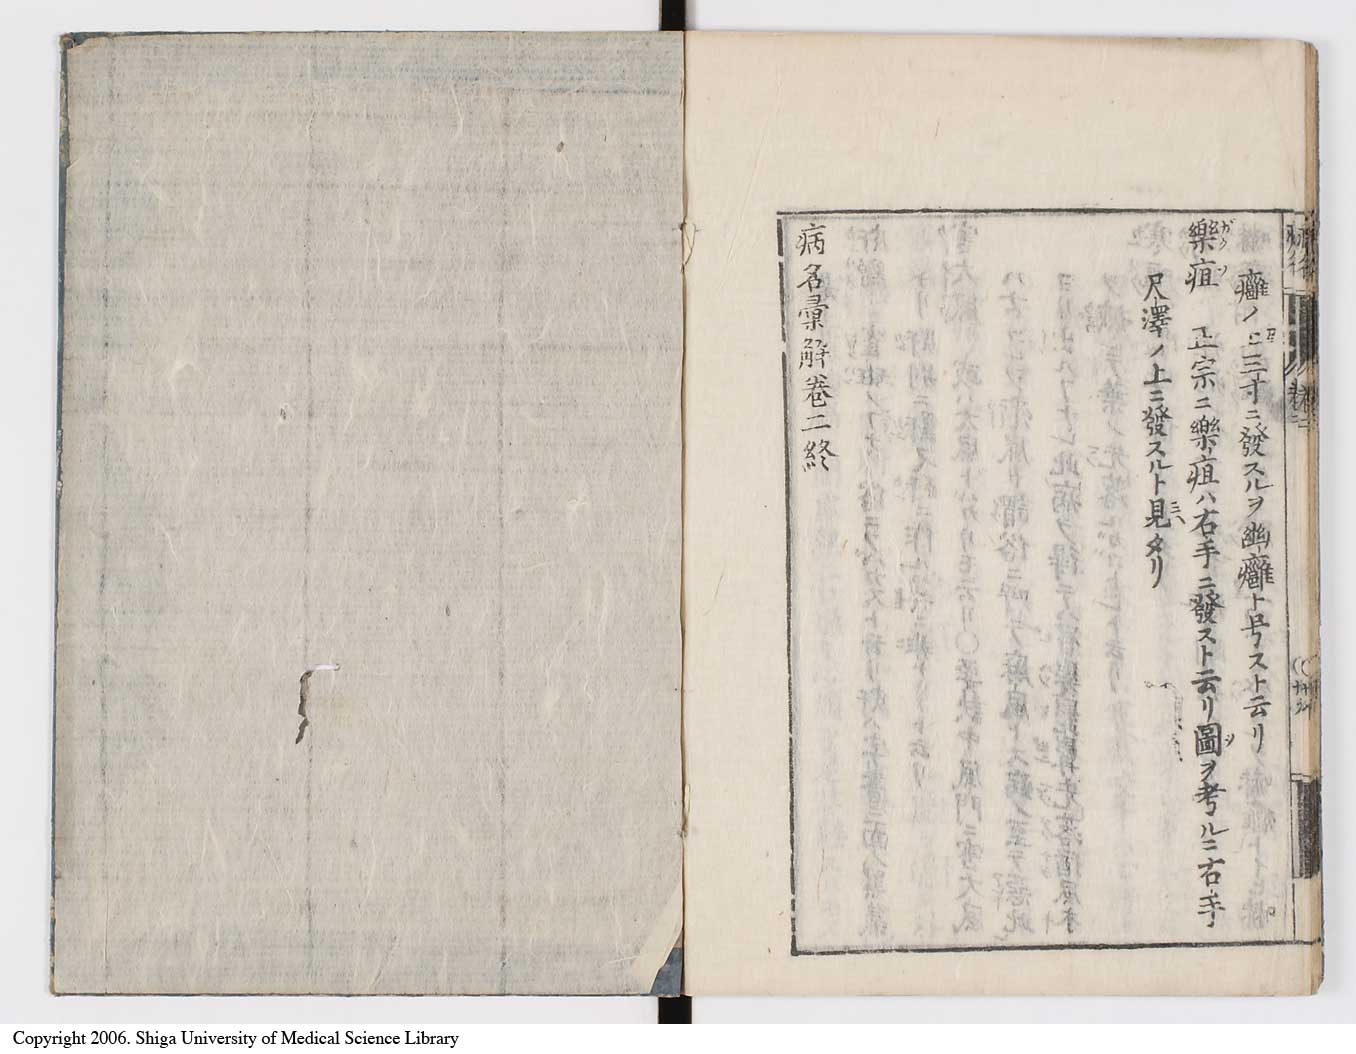 癰ノ上三寸ニ發スルヲ幽癰ト号スト云リ
樂疽 正宗ニ樂疽ハ右手ニ發スト云リ圖ヲ考ルニ右手
ガクソ
尺澤ノ上ニ發スルト見タリ
病名彙解卷二終
Copyright 2006. Shiga University of Medical Science Library